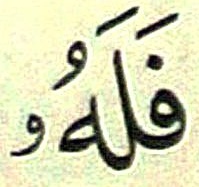 فَلَهُۥ